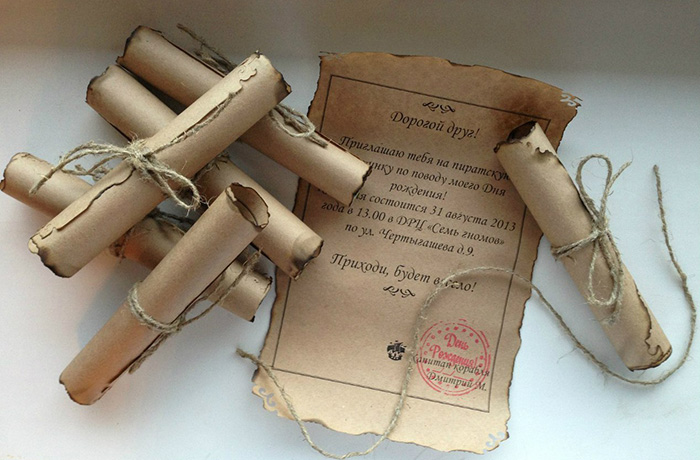 Дорогой друг!
Приглашаю тебя на пиратскую
по поводу моего Дня
рождения!
состоится 31 августа 2013
года в 13.00 в ДРЦ «Семь гномов»
по ул. Чертыгашева д.9.
Приходи, будет
День
Рождения!
Капитан корабля
Дмитрий М.